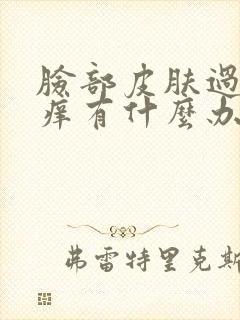 臉部皮肤過
痒有什麽办
弗雷特里克斯